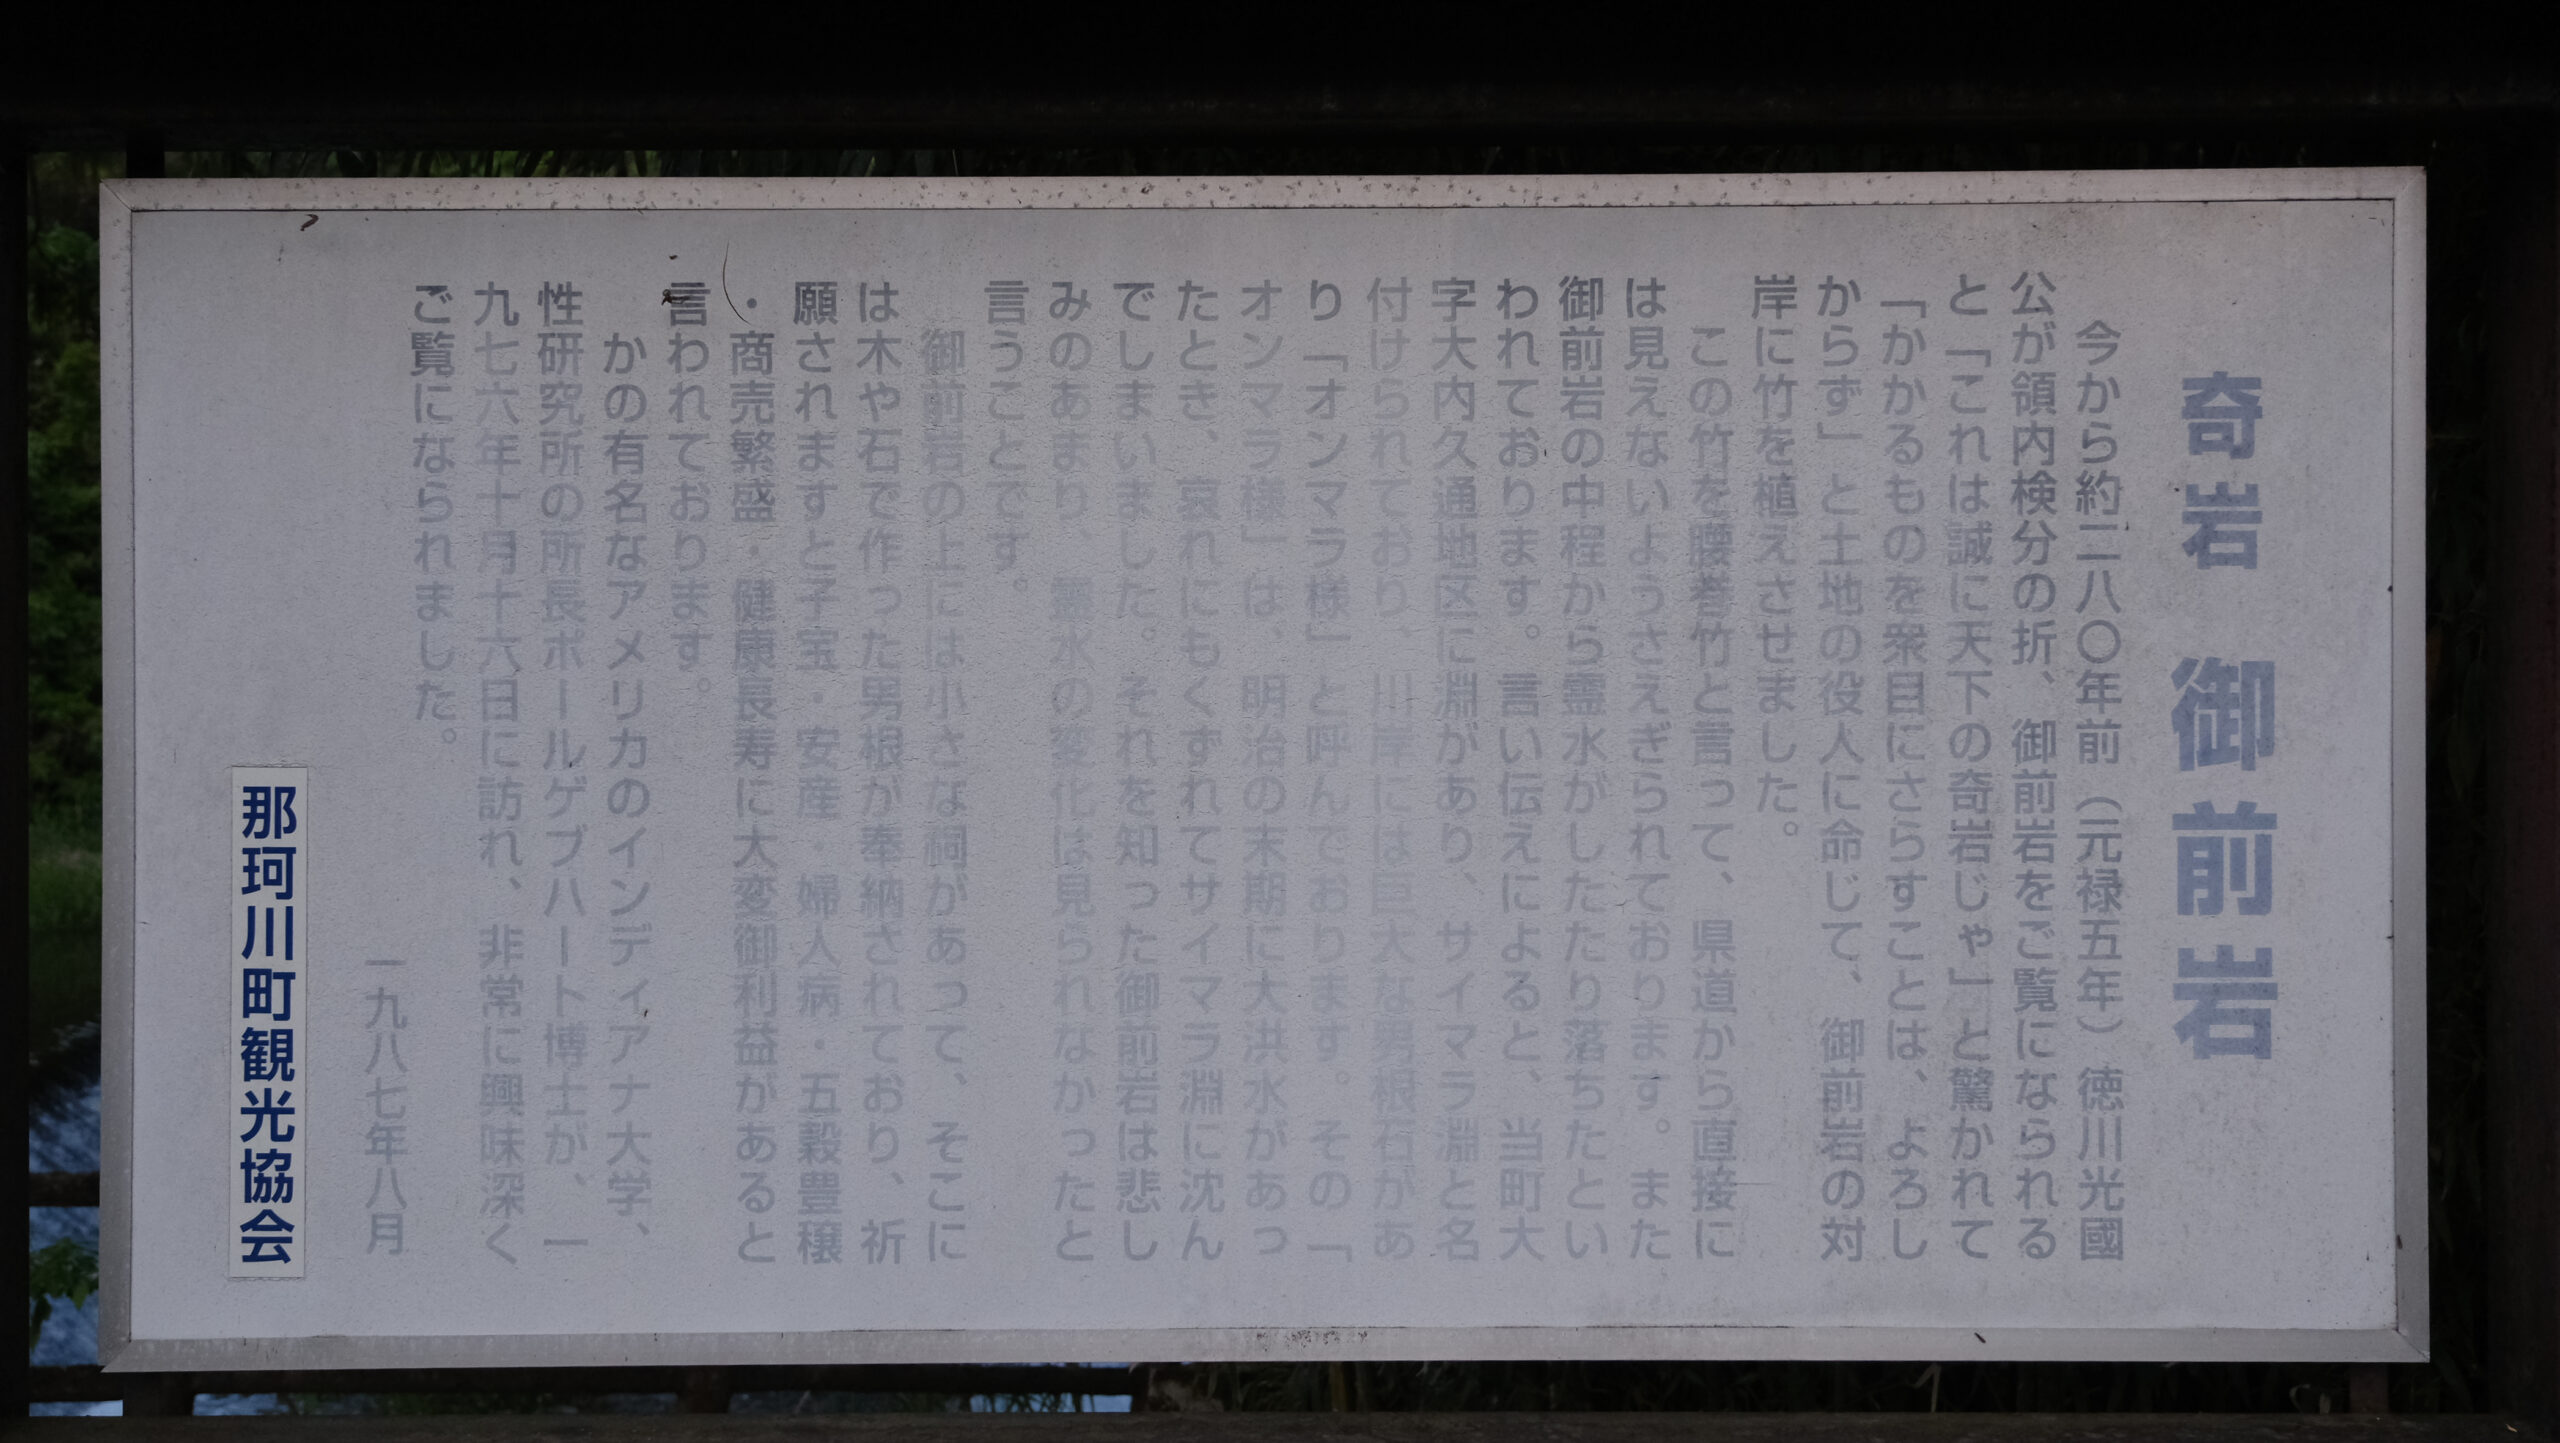 奇岩 御前岩
今から約二八〇年前（元禄五年）徳川光國
公が領内検分の折、御前岩をご覧になられる
と「これは誠に天下の奇岩じゃ」と驚かれて
「かかるものを衆目にさらすことは、よろし
からず」と土地の役人に命じて、御前岩の対
岸に竹を植えさせました。
この竹を腰巻竹と言って、県道から直接に
は見えないようさえぎられております。また
御前岩の中程から霊水がしたたり落ちたとい
われております。言い伝えによると、当町大
字大内久通地区に淵があり、サイマラ淵と名
付けられており、川岸には巨大な男根石があ
り「オンマラ様」と呼んでおります。その「
オンマラ様」は、明治の末期に大洪水があっ
たとき、哀れにもくずれてサイマラ淵に沈ん
でしまいました。それを知った御前岩は悲し
みのあまり、霊水の変化は見られなかったと
言うことです。
御前岩の上には小さな祠があって、そこに
は木や石で作った男根が奉納されており、祈
願されますと子宝・安産・婦人病・五穀豊穣
・商売繁盛・健康長寿に大変御利益があると
言われております。
かの有名なアメリカのインディアナ大学、
性研究所の所長ポールゲブハート博士が、一
九七六年十月十六日に訪れ、非常に興味深く
ご覧になられました。
一九八七年八月
那珂川町観光協会